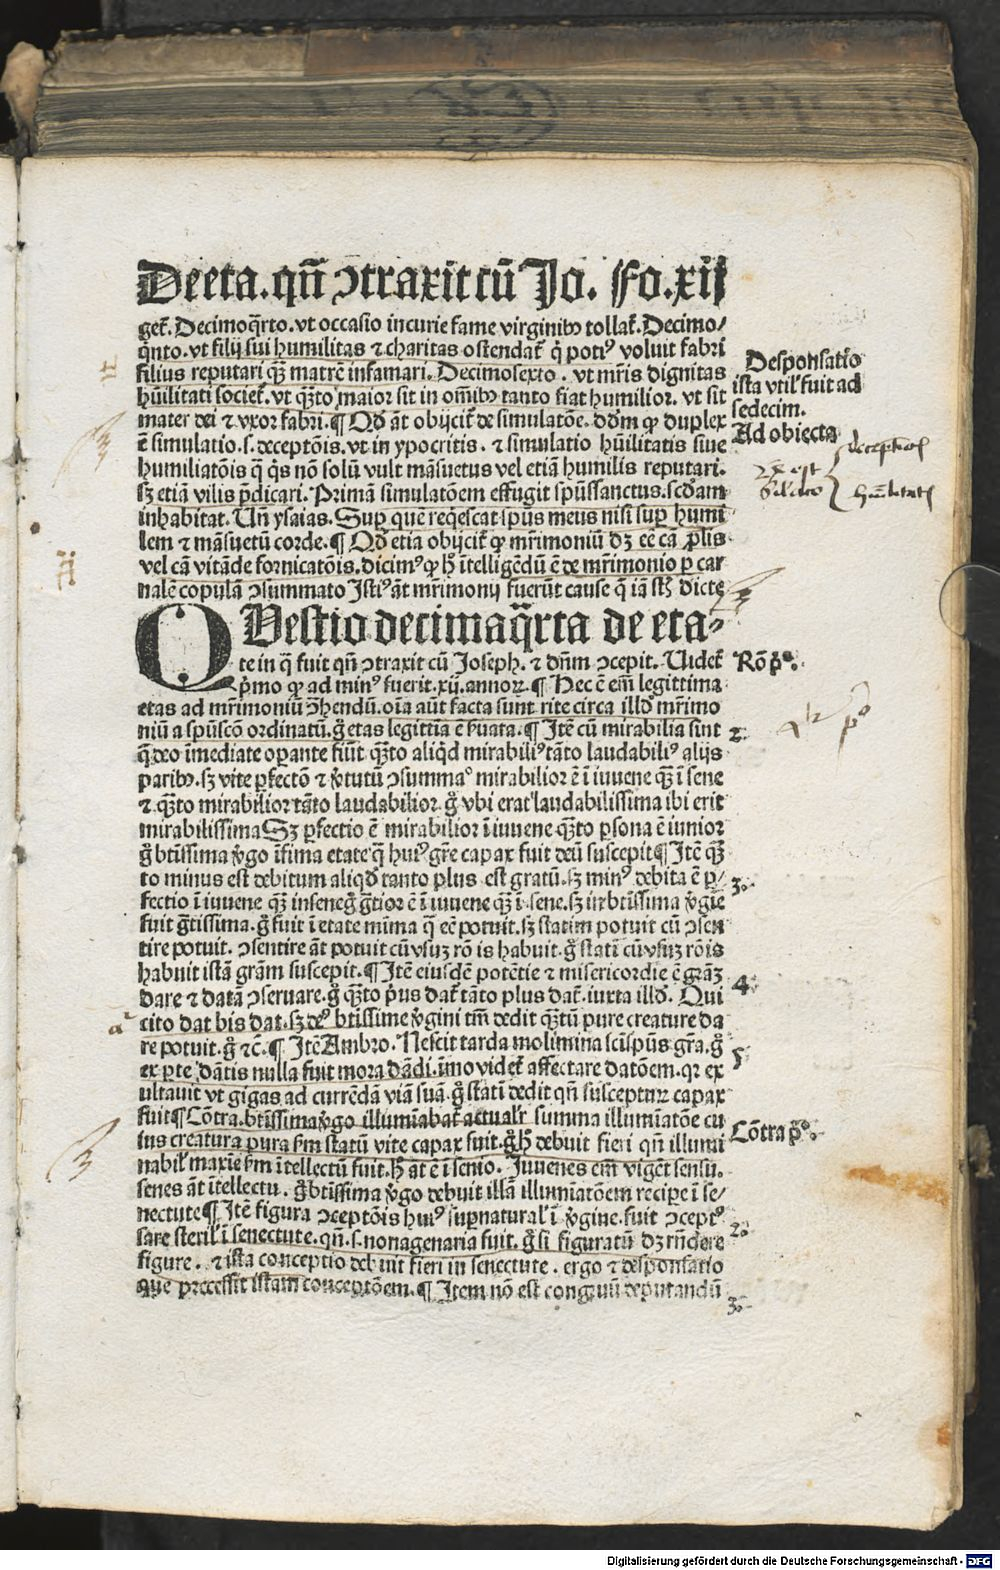 De eta. qñ ↄtraxit cũ Jo. Fo. xij
get̃. Decimoq̃rto. vt occasio incurie fame virginibꝫ tollat̃. Decimo/
q̃nto. vt filij sui humilitas ⁊ charitas ostendat̃ q̇ potiꝰ voluit fabri
filius reputari qꝫ̃ matrẽ infamari. Decimosexto. vt mr̃is dignitas
hũilitati societ̃. vt qꝫ̃to maior sit in om̃ibꝫ tanto fiat humilior. vt sit
mater dei ⁊ vxor fabri. ¶ Qd̃ at̃ obijcit̃ de simulatõe. dd̃m ꝙ duplex
ẽ simulatio. s. deceptõis. vt in ypocritis. ⁊ simulatio hũilitatis siue
humiliatõis q̃ q̇s nõ solũ vult mãsuetus vel etiã humilis reputari.
sꝫ etiã vilis p̃dicari. Primã simulatõem effugit spũssanctus. scd̃am
inhabitat. Uñ ysaias. Sup quẽ reqẽscat spũs meus nisi sup humi
lem ⁊ mãsuetũ corde. ¶ Qd̃ etia obijcit̃ ꝙ mr̃imoniũ dꝫ eẽ cã ꝓlis
vel cã vitãde fornicatõis. dicimꝰ ꝙ h̃ ĩtelligẽdũ ẽ de mr̃imonio ꝑ car
nalẽ copulã ↄsummato Jstiꝰ ãt mr̃imonij fuerũt cause q̃ iã st̃ dicte
QUestio decimaq̃rta de eta⸗
te in q̃ fuit qñ ↄtraxit cũ Joseph. ⁊ dñm ↄcepit. Uidet̃
p̃mo ꝙ ad minꝰ fuerit. xij. annoꝝ. ¶ Hec ẽ em̃ legittima
etas ad mr̃imoniũ ↄ̃hendũ. oĩa aũt facta sunt rite circa illd̃ mr̃imo
niũ a spũscõ ordinatũ. g̊ etas legittĩa ẽ ẜuata. ¶ Jtẽ cũ mirabilia sint
q̃ deo ĩmediate oꝑante fiũt. qꝫ̃to aliqd̃ mirabiliꝰ tãto laudabiliꝰ alijs
paribꝫ. sꝫ vite ꝑfectõ ⁊ ṽtutũ ↄsummaº mirabilior ẽ ĩ iuuene qꝫ̃ ĩ sene
⁊ qꝫ̃to mirabilior tãto laudabilior. g̊ vbi erat laudabilissima ibi erit
mirabilissima Sꝫ ꝑfectio ẽ mirabilior ĩ iuuene qꝫ̃to ꝑsona ẽ iunior
g̊ bt̃issima ṽgo ĩfima etate q̃ huiꝰ gr̃e capax fuit deũ suscepit ¶ Jtẽ qꝫ̃
to minus est debitum aliqd̃ tanto plus est gratũ. sꝫ minꝰ debita ẽ ꝑ/
fectio ĩ iuuene qꝫ̃ in sene g̊ g̃tior ẽ ĩ iuuene qꝫ̃ ĩ sene. sꝫ in bt̃issima ṽgĩe
fuit g̃tissima. g̊ fuit ĩ etate mĩma q̃ eẽ potuit. sꝫ statim potuit cũ ↄsen
tire potuit. ↄsentire ãt potuit cũ vsuꝫ rõis habuit. g̊ statĩ cũ vsuꝫ rõis
habuit istã gr̃am suscepit. ¶ Jtẽ eiusdẽ potẽtie ⁊ misericordie ẽ gr̃aꝫ
dare ⁊ datã ↄseruare. g̊ qꝫ̃to pͥus dat̃ tãto plus dat̃. iuxta illd̃. Qui
cito dat bis dat. sꝫ deꝰ bt̃issime ṽgini tm̃ dedit qꝫ̃tũ pure creature da
re potuit. g̊ ⁊c̃. ¶ Jtẽ Ambro. Nescit tarda molimina scĩspũs gr̃a. g̊
ex ꝑte dãtis nulla fuit mora dãdi. ĩmo videt̃ affectare datõem. qꝛ ex
ultauit vt gigas ad currẽdã viã suã. g̊ statĩ dedit qñ susceptuꝝ capax
fuit ¶ Cõtra. bt̃issima ṽgo illumĩabat̃ actualr̃ summa illumĩatõe cu
ius creatura pura ẜm statũ vite capax fuit. g̊ h̃ debuit fieri qñ illumi
nabilꝰ maxĩe ẜm ĩtellectũ fuit. h̃ at̃ ẽ ĩ senio. Juuenes em̃ viget̃ sensu.
senes ãt ĩtellectu. g̊ bt̃issima ṽgo debuit illã illumĩatõem recipe ĩ se/
nectute ¶ Jtẽ figura ↄceptõis huiꝰ suꝑnaturalꝰ ĩ ṽgine. fuit ↄceptꝰ
sare sterilꝰ ĩ senectute. qñ. s. nonagenaria fuit. g̊ si figuratũ dꝫ rñdere
figure. ⁊ ista conceptio debuit fieri in senectute. ergo ⁊ desponsatio
que precessit istam conceptõem. ¶ Jtem nõ est congruũ deputandũ
Desponsatio
ista vtilꝰ fuit ad
sedecim.
Ad obiecta
Rõ pͣ.
2.
3.
4.
5
Cõtra pͣ.
2.
3.